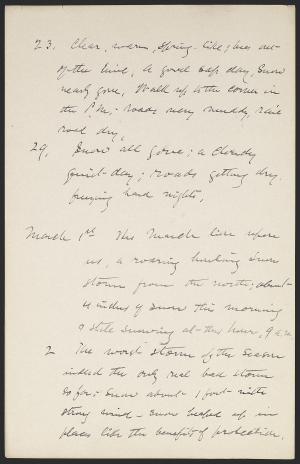 23. Clear, warm, spring-like; bees out
of the hive, A good sap day, Snow
nearly gone, Walk up to the corner in
the P.M. - roads very muddy, rail
road dry,
29, Snow all gone; a cloudy
quiet day; roads getting dry.
freezing hard nights,
March 1st The March lion upon
us, a roaring howling snow
storm from the north; about
inches of snow this morning
& still snowing at this hour, 9 a.m.
2 The worst storm of the season
indeed the only real bad storm
so far; snow about 1 foot with
strong wind - snow heaped up in
places like the benefit of protection.